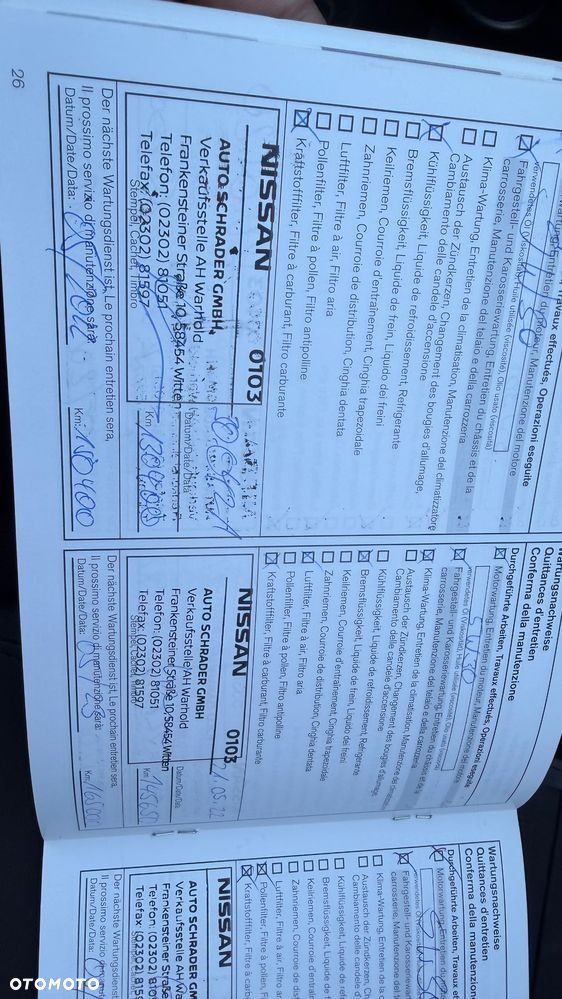 Travaux effectués, Operazioni eseguite
Wartung, Entretien du moteur, Manutenzione del motore
5W30
Fahrgestell- und Karosseriewartung, Entretien du châssis et de la
carrosserie, Manutenzione del telaio e della carrozzeria
Klima-Wartung, Entretien de la climatisation, Manutenzione del climatizzatore
Austausch der Zündkerzen, Changement des bougies d'allumage,
Cambiamento delle candele d'accensione
Kühlflüssigkeit, Liquide de refroidissement, Refrigerante
Bremsflüssigkeit, Liquide de frein, Liquido dei freini
Keilriemen, Courroie d'entraînement, Cinghia trapezoidale
Zahnriemen, Courroie de distribution, Cinghia dentata
Luftfilter, Filtre à air, Filtro aria
Pollenfilter, Filtre à pollen, Filtro antipolline
Kraftstofffilter, Filtre à carburant, Filtro carburante
NISSAN 0103
AUTO SCHRADER GMBH
Verkaufsstelle AH Warhold
Frankensteiner Straße 10, 58454 Witten
Telefon: (02302) 81051
Telefax: (02302) 81597
Stempel, Cachet, Timbro
Datum/Date/Data
Km:
Der nächste Wartungsdienst ist, Le prochain entretien sera,
Il prossimo servizio di manutenzione sarà:
Datum/Date/Data:
Km: 150400
26
Wartungsnachweise
Quittances d'entretien
Conferma della manutenzione
Durchgeführte Arbeiten, Travaux effectués, Operazioni eseguite
Motorwartung, Entretien du moteur, Manutenzione del motore
5W30
Fahrgestell- und Karosseriewartung, Entretien du châssis et de la
carrosserie, Manutenzione del telaio e della carrozzeria
Klima-Wartung, Entretien de la climatisation, Manutenzione del
Austausch der Zündkerzen, Changement des bougies d'allumage,
Cambiamento delle candele d'accensione
Kühlflüssigkeit, Liquide de refroidissement, Refrigerante
Bremsflüssigkeit, Liquide de frein, Liquido dei freini
Keilriemen, Courroie d'entraînement, Cinghia trapezoidale
Zahnriemen, Courroie de distribution, Cinghia dentata
Luftfilter, Filtre à air, Filtro aria
Pollenfilter, Filtre à pollen, Filtro antipolline
Kraftstofffilter, Filtre à carburant, Filtro carburante
NISSAN 0103
AUTO SCHRADER GMBH
Verkaufsstelle AH Warhold
Frankensteiner Straße 10, 58454 Witten
Telefon: (02302) 81051
Telefax: (02302) 81597
05.22
Datum/Date/Data
Der nächste Wartungsdienst ist, Le prochain entretien sera,
Il prossimo servizio di manutenzione sarà:
Datum/Date/Data:
Km:
Wartungsnachweise
Quittances d'entretien
Conferma della manutenzione
Durchgeführte Arbeiten, Travaux
Motorwartung, Entretien du
Fahrgestell- und Karosseriewartung
carrosserie, Manutenzione del
Klima-Wartung, Entretien de la
Austausch der Zündkerzen
Cambiamento delle candele
Kühlflüssigkeit, Liquide de
Bremsflüssigkeit, Liquide de
Keilriemen, Courroie d'entraî
Zahnriemen, Courroie de
Luftfilter, Filtre à air, Filtro
Pollenfilter, Filtre à pollen,
Kraftstofffilter, Filtre à
NISSAN
AUTO SCHRADER GM
Verkaufsstelle AH Wa
Frankensteiner Straße
Telefon: (02302) 810
Telefax: (02302) 815
Der nächste Wartungsdienst
Il prossimo servizio di
Datum/Date/Data:
OTOMOTO